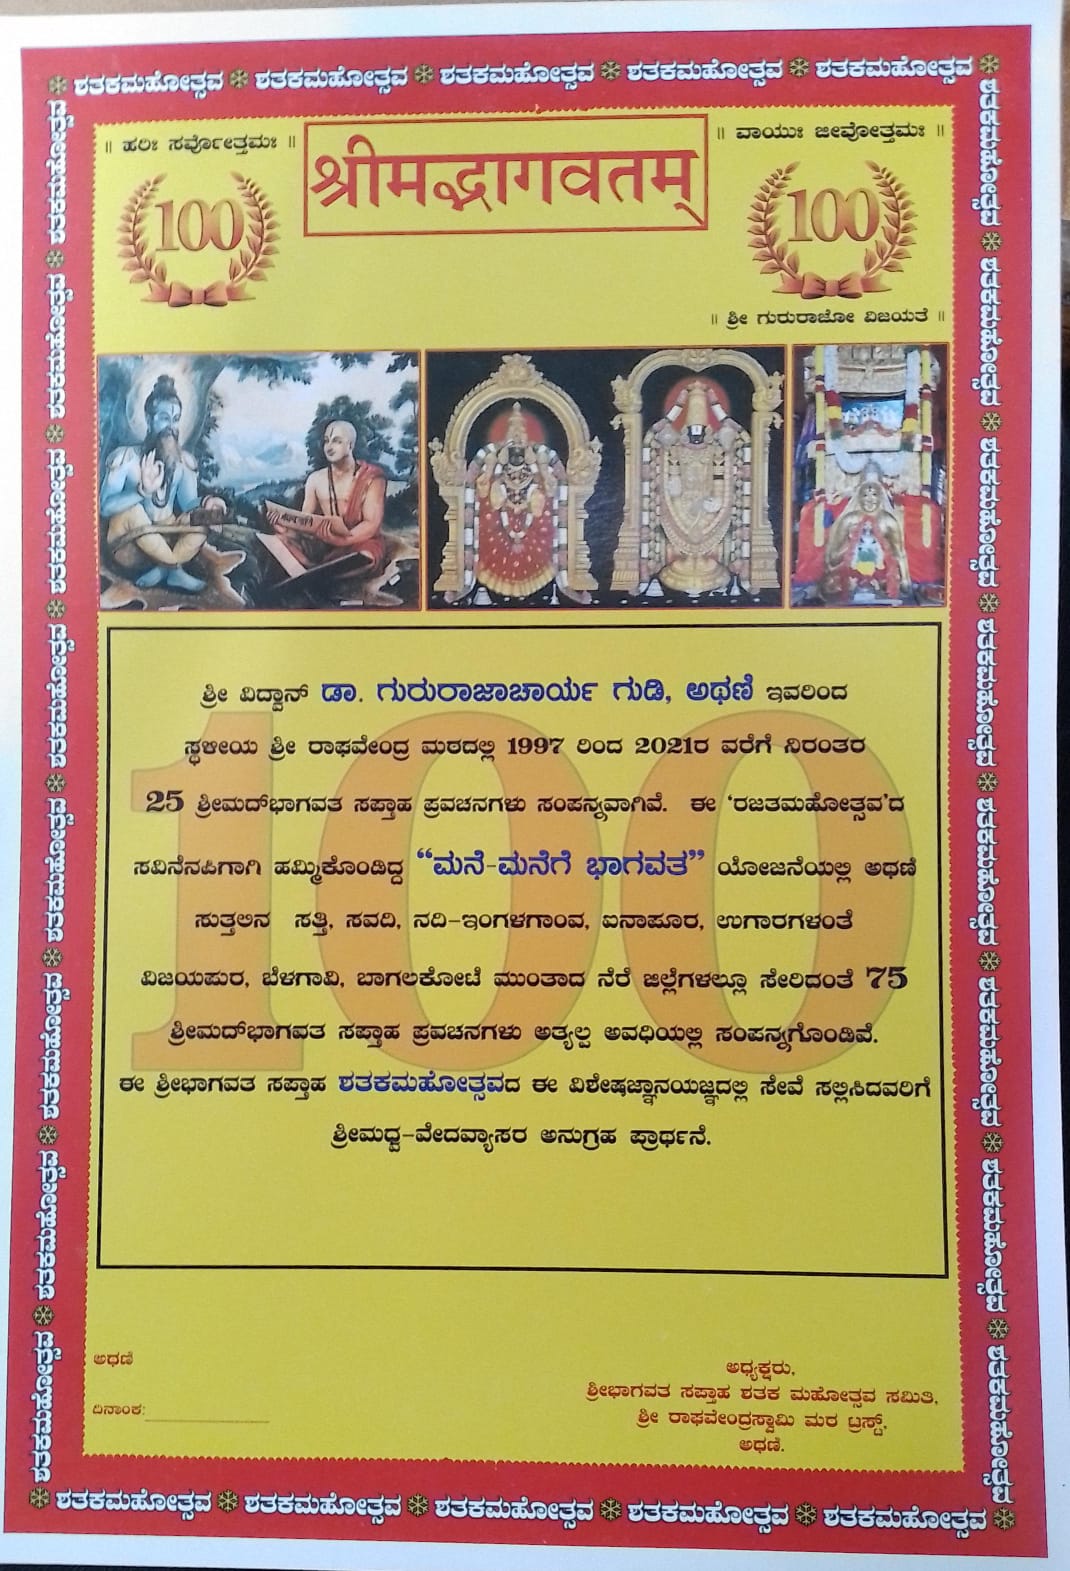 ❄ ಶತಕಮಹೋತ್ಸವ ❄ ಶತಕಮಹೋತ್ಸವ ❄ ಶತಕಮಹೋತ್ಸವ ❄ ಶತಕಮಹೋತ್ಸವ ❄ ಶತಕಮಹೋತ್ಸವ ❄
|| ಹರಿಃ ಸರ್ವೋತ್ತಮಃ ||
श्रीमद्भागवतम्
|| ವಾಯುಃ ಜೀವೋತ್ತಮಃ ||
100
100
|| ಶ್ರೀ ಗುರುರಾಜೋ ವಿಜಯತೆ ||
ಶ್ರೀ ವಿದ್ವಾನ್ ಡಾ. ಗುರುರಾಜಾಚಾರ್ಯ ಗುಡಿ, ಅಥಣಿ ಇವರಿಂದ
ಸ್ಥಳೀಯ ಶ್ರೀ ರಾಘವೇಂದ್ರ ಮಠದಲ್ಲಿ 1997 ರಿಂದ 2021ರ ವರೆಗೆ ನಿರಂತರ
25 ಶ್ರೀಮದ್‌ಭಾಗವತ ಸಪ್ತಾಹ ಪ್ರವಚನಗಳು ಸಂಪನ್ನವಾಗಿವೆ. ಈ ‘ರಜತಮಹೋತ್ಸವ’ದ
ಸವಿನೆನಪಿಗಾಗಿ ಹಮ್ಮಿಕೊಂಡಿದ್ದ “ಮನೆ-ಮನೆಗೆ ಭಾಗವತ” ಯೋಜನೆಯಲ್ಲಿ ಅಥಣಿ
ಸುತ್ತಲಿನ ಸತ್ತಿ, ಸವದಿ, ನದಿ-ಇಂಗಳಗಾಂವ, ಐನಾಪೂರ, ಉಗಾರಗಳಂತೆ
ವಿಜಯಪುರ, ಬೆಳಗಾವಿ, ಬಾಗಲಕೋಟೆ ಮುಂತಾದ ನೆರೆ ಜಿಲ್ಲೆಗಳಲ್ಲೂ ಸೇರಿದಂತೆ 75
ಶ್ರೀಮದ್‌ಭಾಗವತ ಸಪ್ತಾಹ ಪ್ರವಚನಗಳು ಅತ್ಯಲ್ಪ ಅವಧಿಯಲ್ಲಿ ಸಂಪನ್ನಗೊಂಡಿವೆ.
ಈ ಶ್ರೀಭಾಗವತ ಸಪ್ತಾಹ ಶತಕಮಹೋತ್ಸವದ ಈ ವಿಶೇಷಜ್ಞಾನಯಜ್ಞದಲ್ಲಿ ಸೇವೆ ಸಲ್ಲಿಸಿದವರಿಗೆ
ಶ್ರೀಮಧ್ವ-ವೇದವ್ಯಾಸರ ಅನುಗ್ರಹ ಪ್ರಾರ್ಥನೆ.
100
ಅಥಣಿ
ದಿನಾಂಕ:
ಅಧ್ಯಕ್ಷರು,
ಶ್ರೀಭಾಗವತ ಸಪ್ತಾಹ ಶತಕ ಮಹೋತ್ಸವ ಸಮಿತಿ,
ಶ್ರೀ ರಾಘವೇಂದ್ರಸ್ವಾಮಿ ಮಠ ಟ್ರಸ್ಟ್,
ಅಥಣಿ.
ಶತಕಮಹೋತ್ಸವ ❄ ಶತಕಮಹೋತ್ಸವ ❄ ಶತಕಮಹೋತ್ಸವ ❄ ಶತಕಮಹೋತ್ಸವ ❄ ಶತಕಮಹೋತ್ಸವ ❄ ಶತಕಮಹೋತ್ಸವ ❄ ಶತಕಮಹೋತ್ಸವ ❄ ಶತಕಮಹೋತ್ಸವ
ಶತಕಮಹೋತ್ಸವ ❄ ಶತಕಮಹೋತ್ಸವ ❄ ಶತಕಮಹೋತ್ಸವ ❄ ಶತಕಮಹೋತ್ಸವ ❄ ಶತಕಮಹೋತ್ಸವ ❄ ಶತಕಮಹೋತ್ಸವ ❄ ಶತಕಮಹೋತ್ಸವ ❄ ಶತಕಮಹೋತ್ಸವ
❄ ಶತಕಮಹೋತ್ಸವ ❄ ಶತಕಮಹೋತ್ಸವ ❄ ಶತಕಮಹೋತ್ಸವ ❄ ಶತಕಮಹೋತ್ಸವ ❄ ಶತಕಮಹೋತ್ಸವ ❄